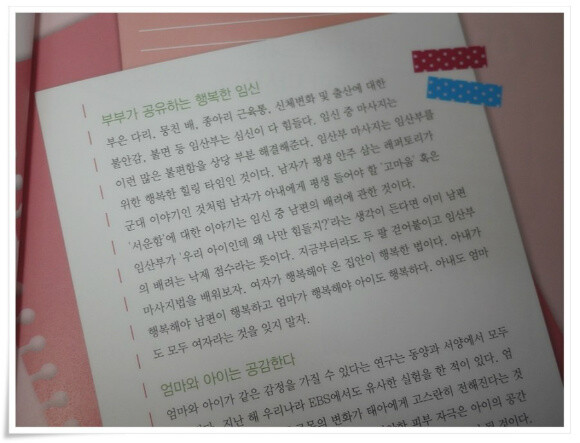 부부가 공유하는 행복한 임신
부은 다리, 뭉친 배, 종아리 근육통, 신체변화 및 출산에 대한
불안감, 불면 등 임산부는 심신이 다 힘들다. 임신 중 마사지는
이런 많은 불편함을 상당 부분 해결해준다. 임산부 마사지는 임산부를
위한 행복한 힐링 타임인 것이다. 남자가 평생 안주 삼는 레퍼토리가
군대 이야기인 것처럼 남자가 아내에게 평생 들어야 할 '고마움' 혹은
'서운함'에 대한 이야기는 임신 중 남편의 배려에 관한 것이다.
임산부가 '우리 아이인데 왜 나만 힘들지?'라는 생각이 든다면 이미 남편
의 배려는 낙제 점수라는 뜻이다. 지금부터라도 두 팔 걷어붙이고 임산부
마사지법을 배워보자. 여자가 행복해야 온 집안이 행복한 법이다. 아내가
행복해야 남편이 행복하고 엄마가 행복해야 아이도 행복하다. 아내도 엄마
도 모두 여자라는 것을 잊지 말자.
엄마와 아이는 공감한다
엄마와 아이가 같은 감정을 가질 수 있다는 연구는 동양과 서양에서 모두
지난 해 우리나라 EBS에서도 유사한 실험을 한 적이 있다. 엄
변화가 태아에게 고스란히 전해진다는 것
피부 자극은 아이의 공간